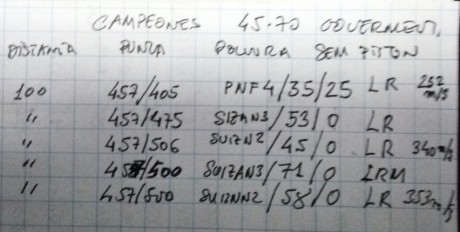 CAMPEONES 45-70 GOUERMENT,
DISTANCIA PUNTA POLVORA SEM PISTON
100 457/405 PNF4/35/25 LR 252 m/s
" 457/475 SUIZAN3/53/0 LR
" 457/506 SUIZN2/45/0 LR 340m/s
" 457/500 SUIZAN3/71/0 LRM
" 457/500 SUIZNN2/58/0 LR 353m/s